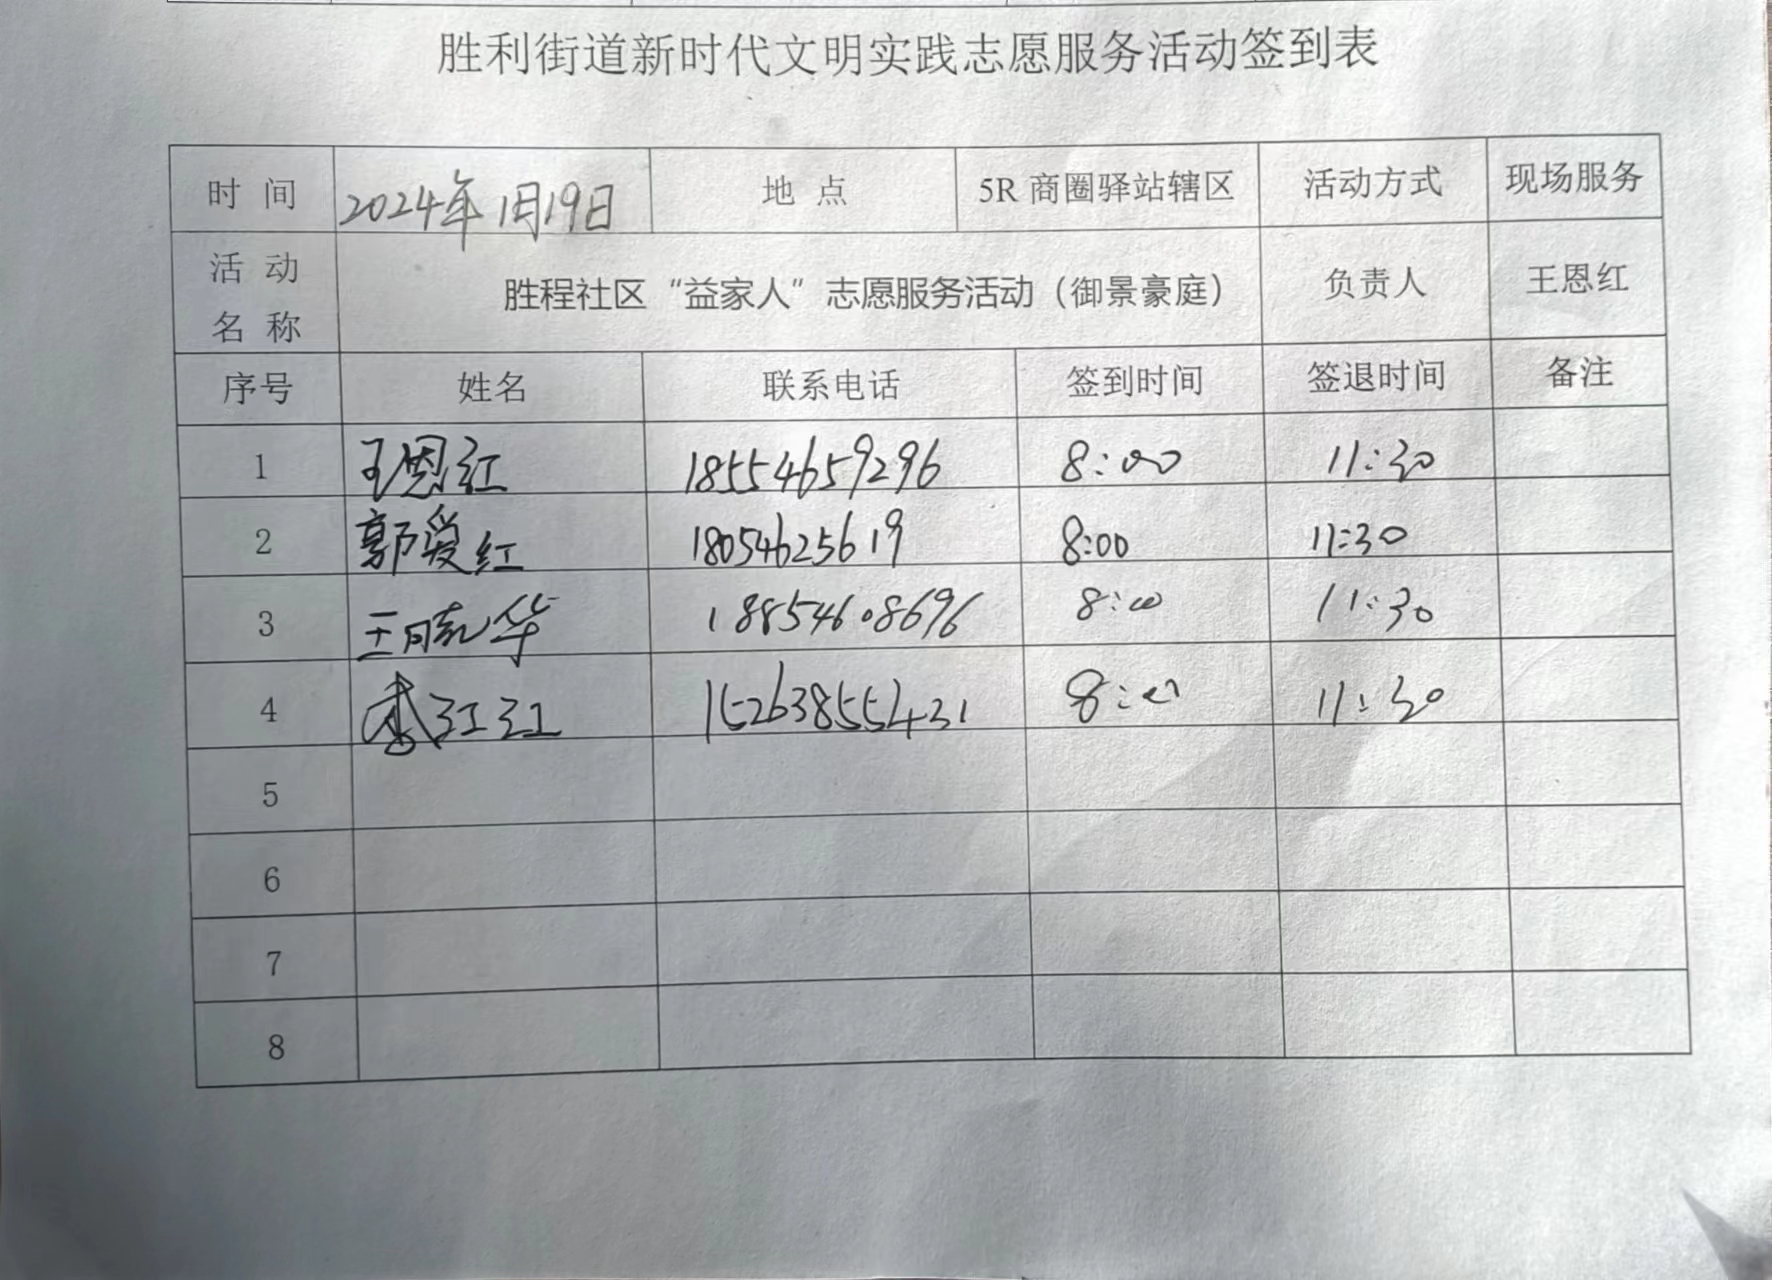 胜利街道新时代文明实践志愿服务活动签到表
时 间 2024年1月19日 地 点 5R 商圈驿站辖区 活动方式 现场服务
活 动 名 称 胜程社区“益家人”志愿服务活动（御景豪庭） 负责人 王恩红
序号 姓名 联系电话 签到时间 签退时间 备注
1 王恩红 18554659296 8:00 11:30
2 郭爱红 18054625619 8:00 11:30
3 王晓华 18854608696 8:00 11:30
4 红红 15263855431 8:00 11:30
5
6
7
8